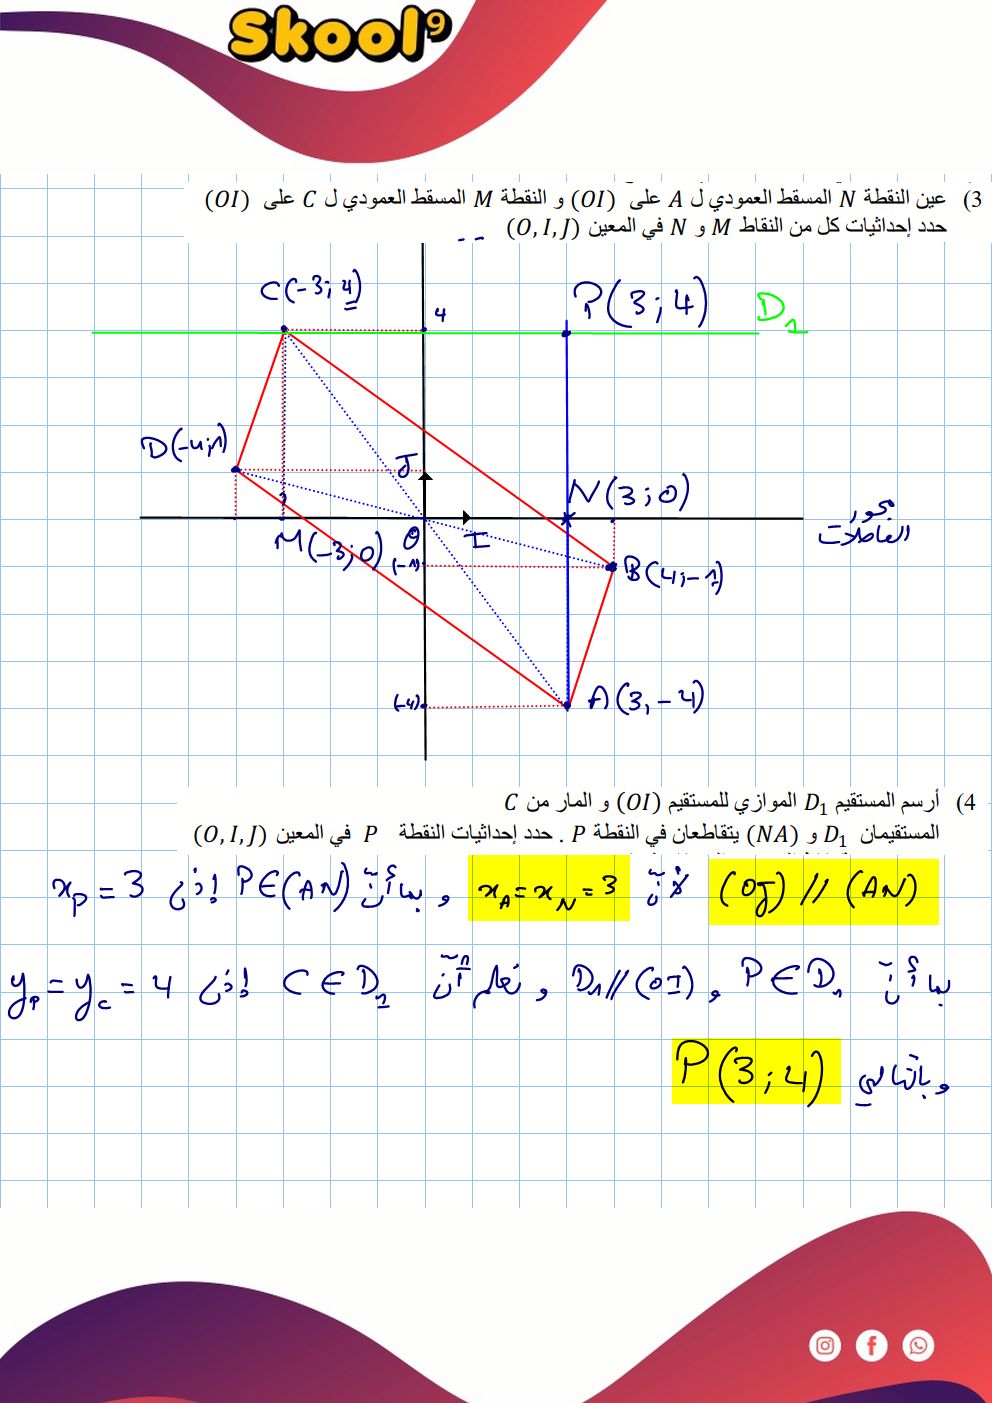 Skool9
3) عين النقطة N المسقط العمودي ل A على (OI) و النقطة M المسقط العمودي ل C على (OI)
حدد إحداثيات كل من النقاط M و N في المعين (O, I, J)
C(-3; 4)
4
P(3; 4)
D1
D(-4; 1)
J
N(3; 0)
محور
الفاصلات
M(-3; 0)
O
I
(-1)
B(4; -1)
(-4)
A(3, -4)
4) أرسم المستقيم D1 الموازي للمستقيم (OI) و المار من C
المستقيمان D1 و (NA) يتقاطعان في النقطة P . حدد إحداثيات النقطة P في المعين (O, I, J)
(OJ) // (AN) لأن xA = xN = 3 و بما أن P ∈ (AN) إذن xP = 3
بما أن P ∈ D1 و D1 // (OI) و نعلم أن C ∈ D1 إذن yP = yC = 4
و بالتالي P(3; 4)